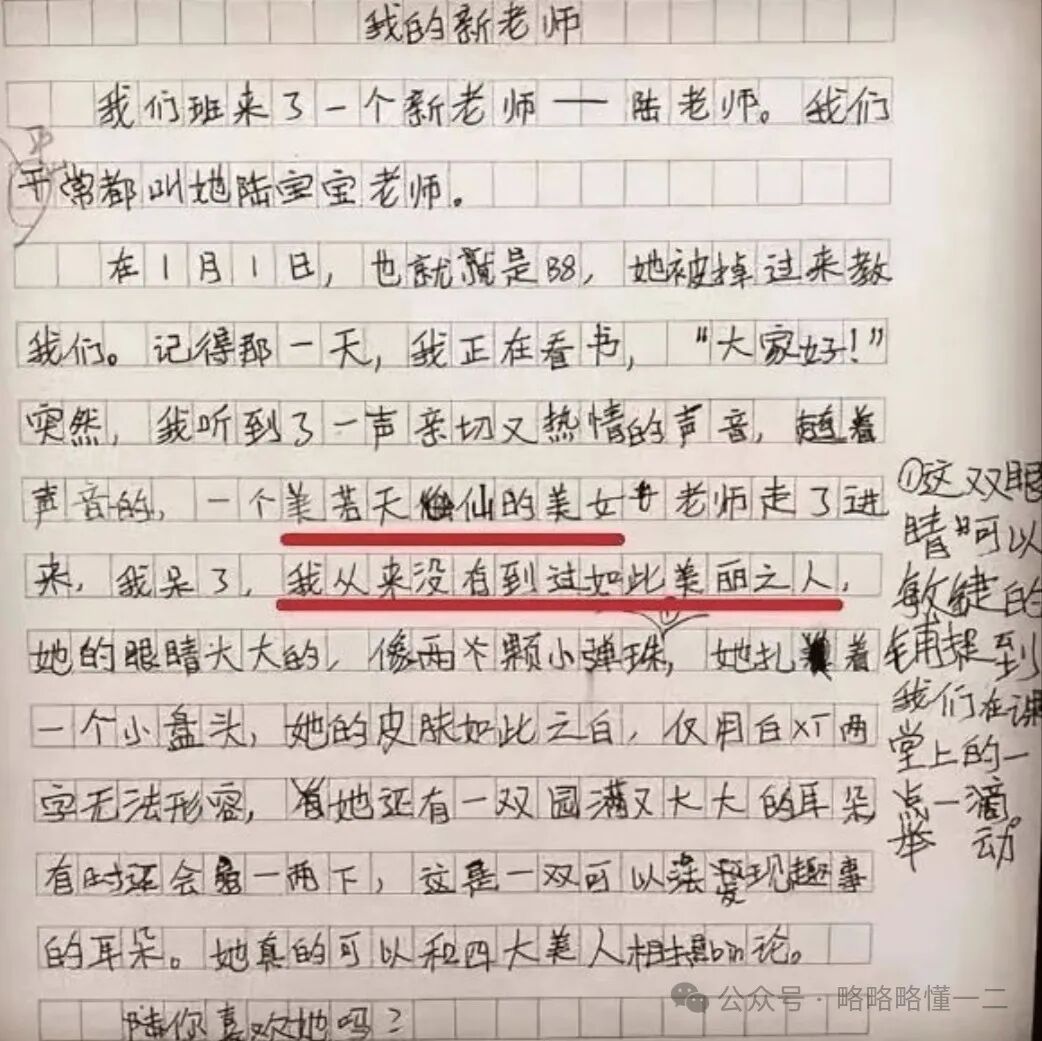 我的新老师
我们班来了一个新老师——陆老师。我们
平
平常都叫她陆宝宝老师。
在1月1日，也就是B8，她被掉过来教
我们。记得那一天，我正在看书，“大家好！”
突然，我听到了一声亲切又热情的声音，随着
声音的，一个美若天仙的美女老师走了进
来，我呆了，我从来没有到过如此美丽之人，
她的眼睛大大的，像两个颗小弹珠，她扎着
一个小盘头，她的皮肤如此之白，仅用白XT两
字无法形容，她还有一双园满又大大的耳朵，
有时还会一两下，这是一双可以发现趣事
的耳朵。她真的可以和四大美人相提bin论。
陆你喜欢她吗？
①这双眼
睛可以
敏健的
铺捉到
我们在课
堂上的一
点一滴。
举动
公众号·略略略懂一二